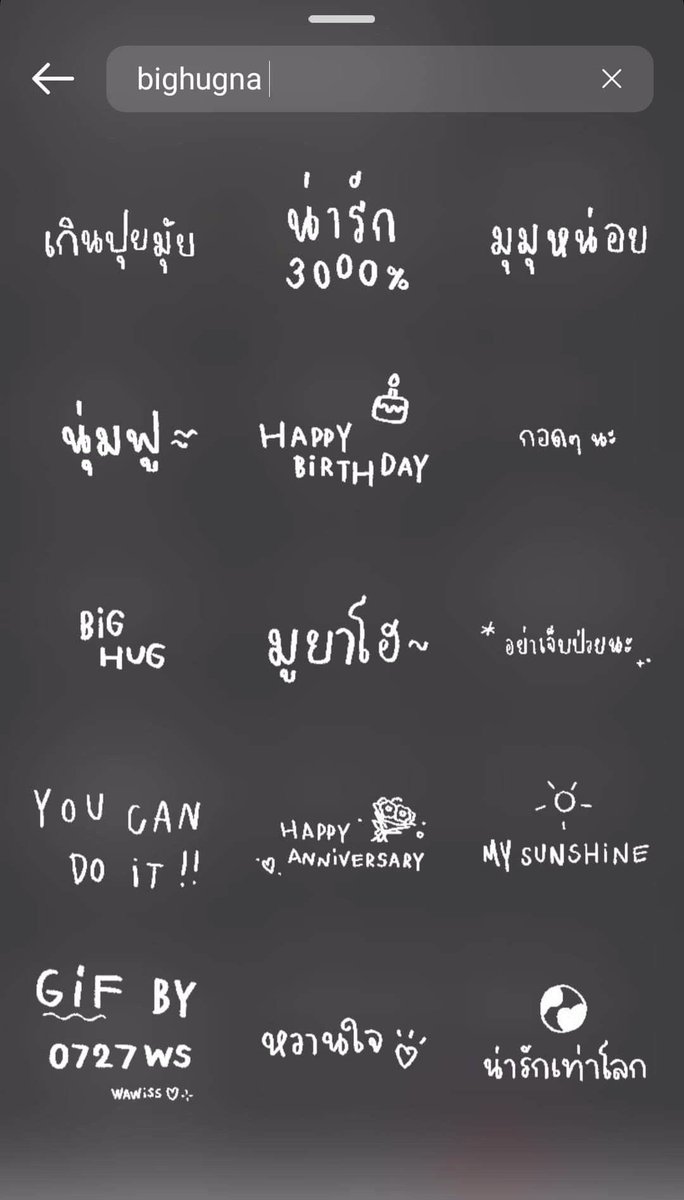 bighugna
เกินปุยมุ้ย
น่ารัก
3000%
มุมุหน่อย
นุ่มฟู~
HAPPY
BiRTHDAY
กอดๆ นะ
BiG
HUG
มูยาโฮ~
*อย่าเจ็บป่วยนะ
YOU CAN
DO iT!!
HAPPY
ANNiVERSARY
MY SUNSHiNE
GiF BY
0727WS
WAWiSS
หวานใจ
น่ารักเท่าโลก